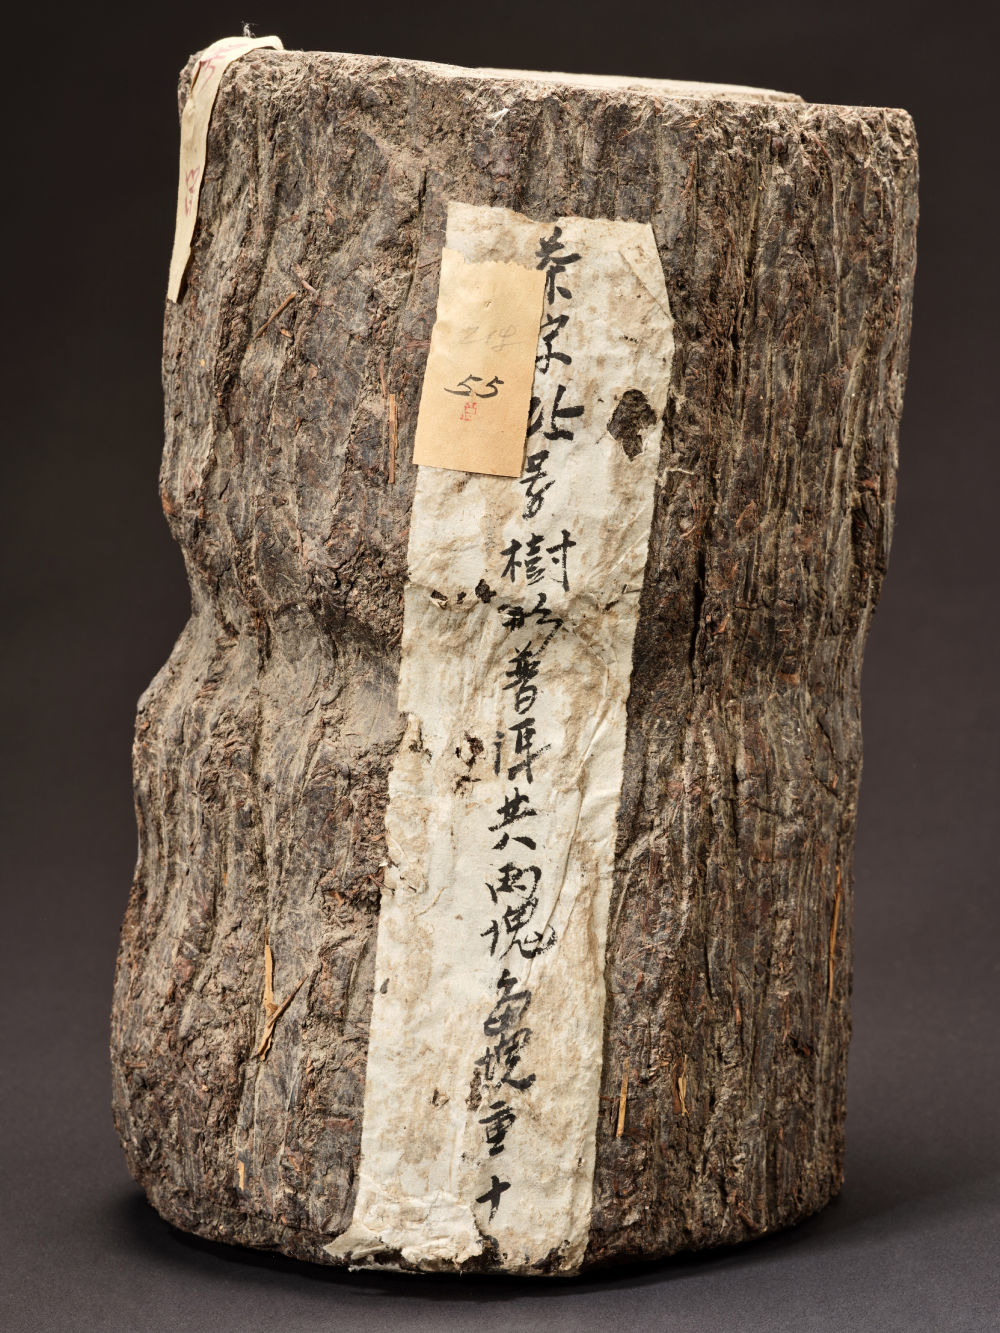 茶字
号樹形普洱共兩塊每塊重十
55